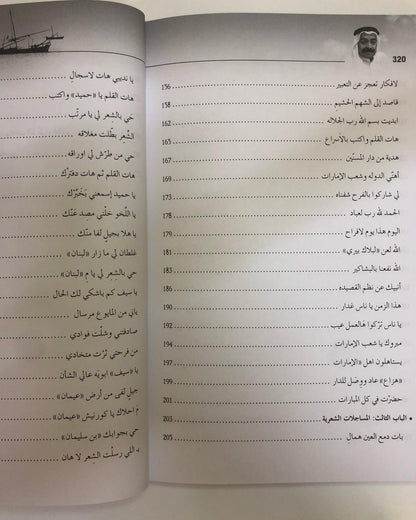 320
لافكار تعجز عن التعبير ........ 156
قاصد إلى الشهم الحشيم ........ 158
ابديت بسم الله رب الجلاله ........ 162
هات القلم واكتب بالأسراع ........ 165
هدية من دار المسنّين ........ 167
أهنّي الدوله وشعب الإمارات ........ 169
لي شاركوا بالفرح شفناه ........ 173
الحمد لله رب لعباد ........ 178
اليوم هذا يوم لافراح ........ 179
الله لعن «لبلاك بيري» ........ 181
الله نفعنا بالبشاكير ........ 183
أنبيك عن نظم القصيده ........ 186
هذا الزمن يا ناس غدار ........ 190
يا ناس تركوا هالعمل عيب ........ 192
مبروك يا شعب الإمارات ........ 194
يستاهلون اهل «الإمارات» ........ 197
«هزاع» عاد ووصل للدار ........ 199
حضرت في كل المبارات ........ 201
• الباب الثالث: المساجلات الشعرية ........ 203
بات دمع العين همال ........ 205
يا نديبي هات لاسجال
هات القلم يا «حميد» واكتب
حَي بالشعر لي يا مرتّب
الشعر بطّلت مغلاقه
حي من طرّش لي اوراقه
هات القلم ثم هات دفترك
يا حميد إسمعني بَخَبّرْك
يا اللخو خلّني مصِد عَنّك
يا هلا بجيلٍ لفا منّك
غلطان لي ما زار «لبنان»
حي بالشعر لي يا م «لبنان»
يا سيف كم باشكي لك الحال
ياني من المايوع مرسال
صادفتني وشلّت فوادي
من فرحتي ثرْت متخادي
يا «سيف» ابويه عالي الشان
جيلٍ لفى من أرض «عيمان»
م احلاك يا كورنيش «عيمان»
حي بجوابك «بن سليمان»
يه اللي رسلْت الشِعر لا هان